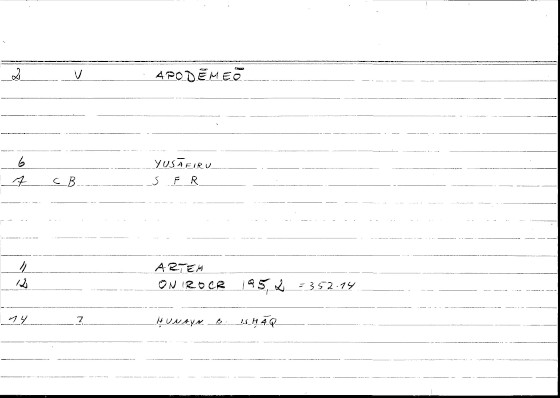 2 V APODĒMEŌ
6 YUSĀFIRU
7 CB S F R
11 ARTEM
12 ONIROCR 195,2 = 352.14
14 ? ḤUNAYN B. ISḤĀQ